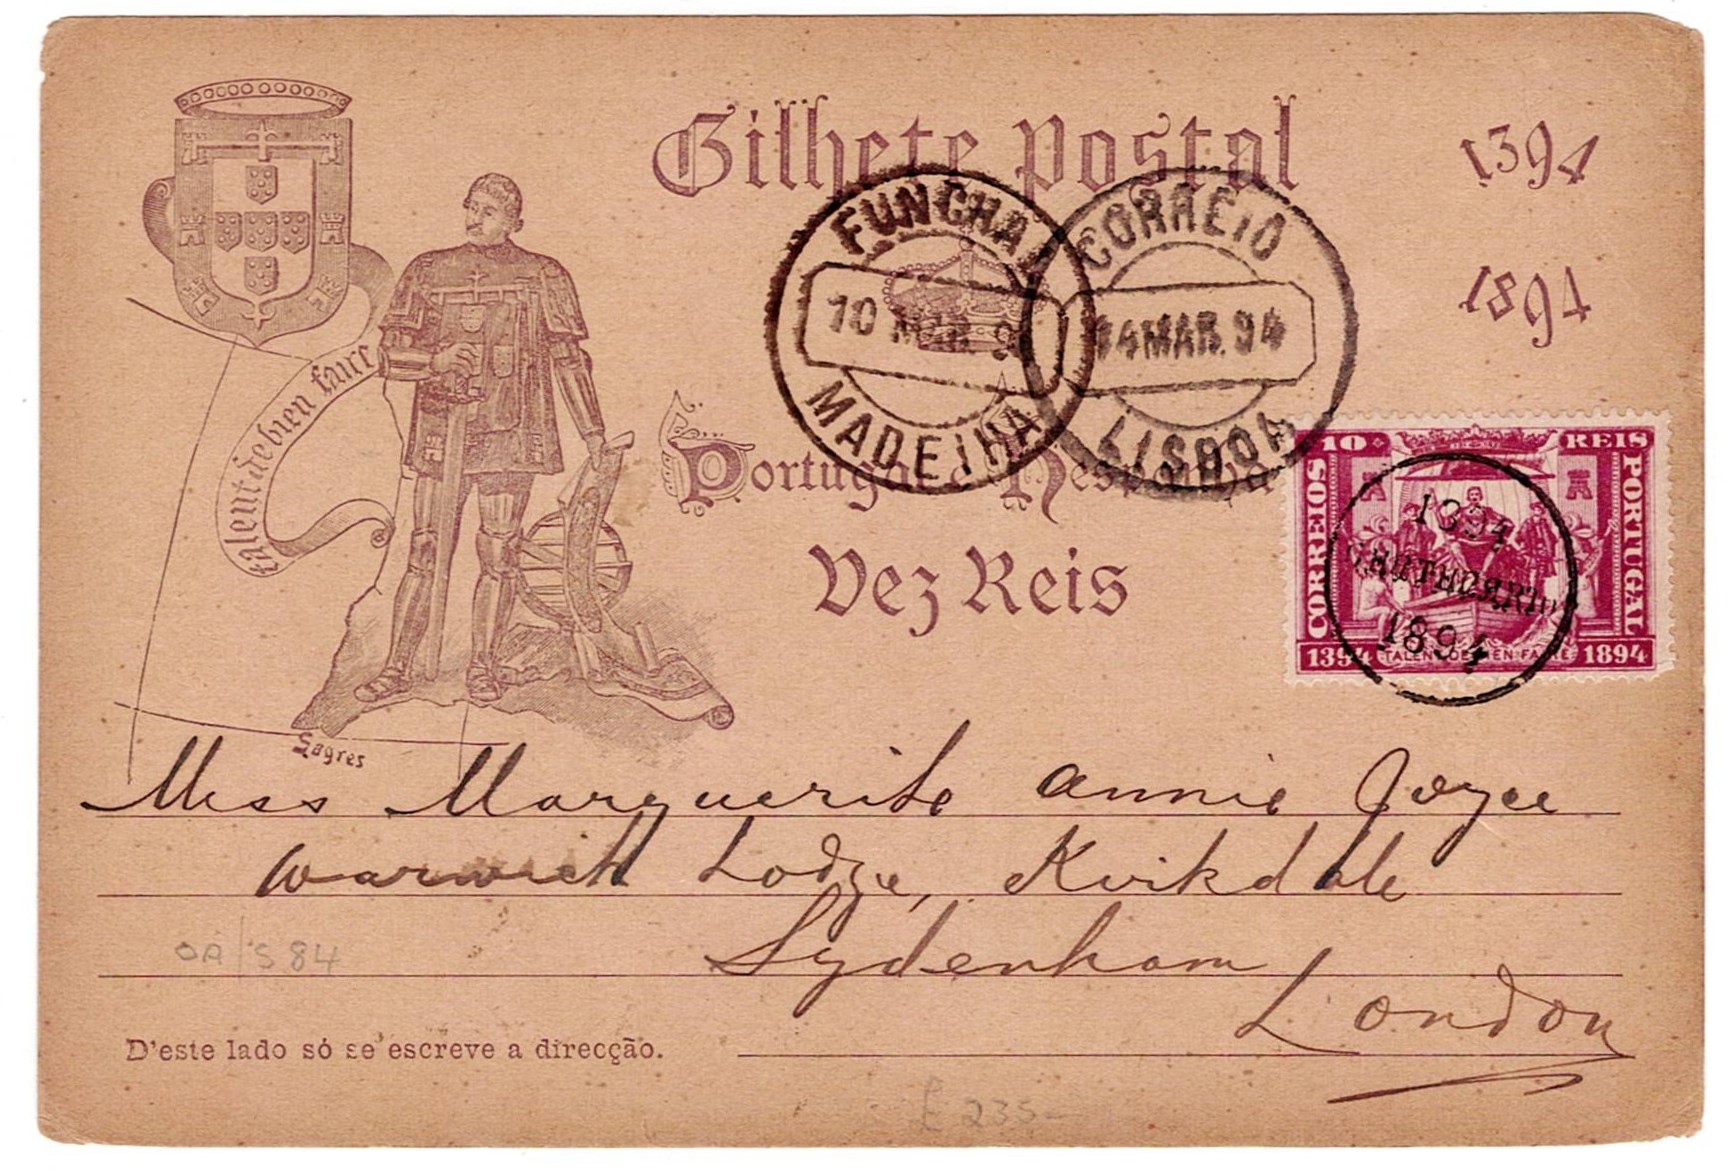 Bilhete Postal
1394
1894
FUNCHAL
10 MAR. 9
MADEIRA
CORREIO
14 MAR. 94
LISBOA
talent de bien faire
Portugal e Hespanha
Dez Reis
10 REIS
CORREIOS
PORTUGAL
1394 TALENT DE BIEN FAIRE 1894
1394
1894
Sagres
Miss Marguerite Annie Joyce
Warwick Lodge, Kirkdale
Sydenham
London
OA/S 84
D'este lado só se escreve a direcção.
£ 235-